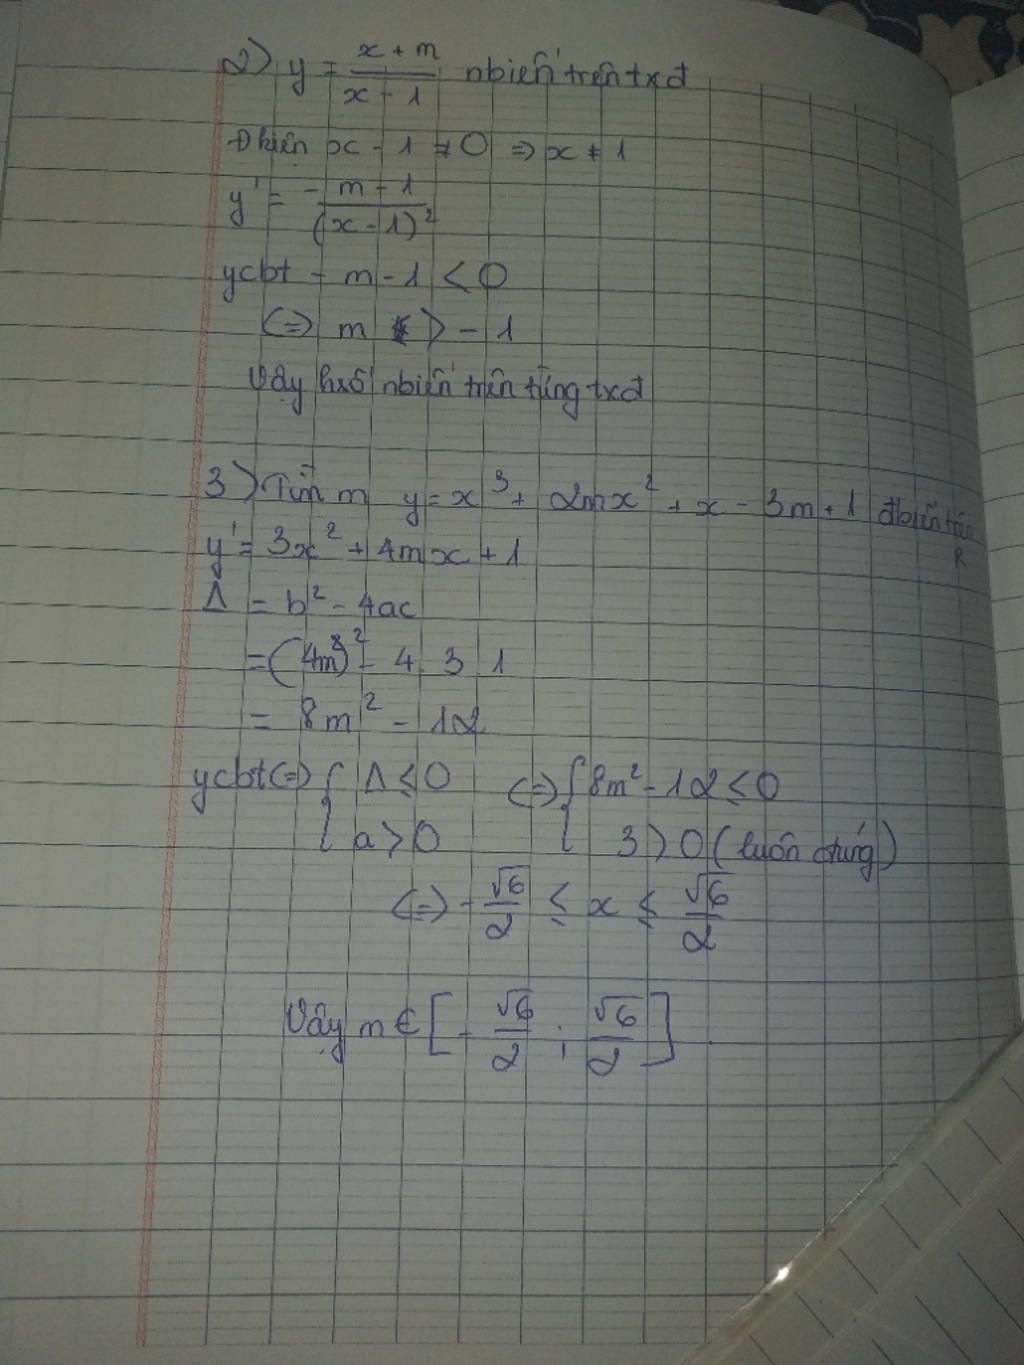 2) y = \frac{x + m}{x - 1} nbiến trên txđ
Đkiện x - 1 ≠ 0 => x ≠ 1
y' = \frac{- m - 1}{(x - 1)^2}
ycbt - m - 1 < 0
<=> m > - 1
Vậy hsố nbiến trên từng txđ
3) Tìm m y = x^3 + 2mx^2 + x - 3m + 1 đbiến trên R
y' = 3x^2 + 4mx + 1
Δ = b^2 - 4ac
= (4m)^2 - 4.3.1
= 8m^2 - 12
ycbt <=> { Δ ≤ 0 <=> { 8m^2 - 12 ≤ 0
a > 0 3 > 0 (luôn đúng)
<=> - \frac{√6}{2} ≤ x ≤ \frac{√6}{2}
Vậy m ∈ [ - \frac{√6}{2} ; \frac{√6}{2} ]